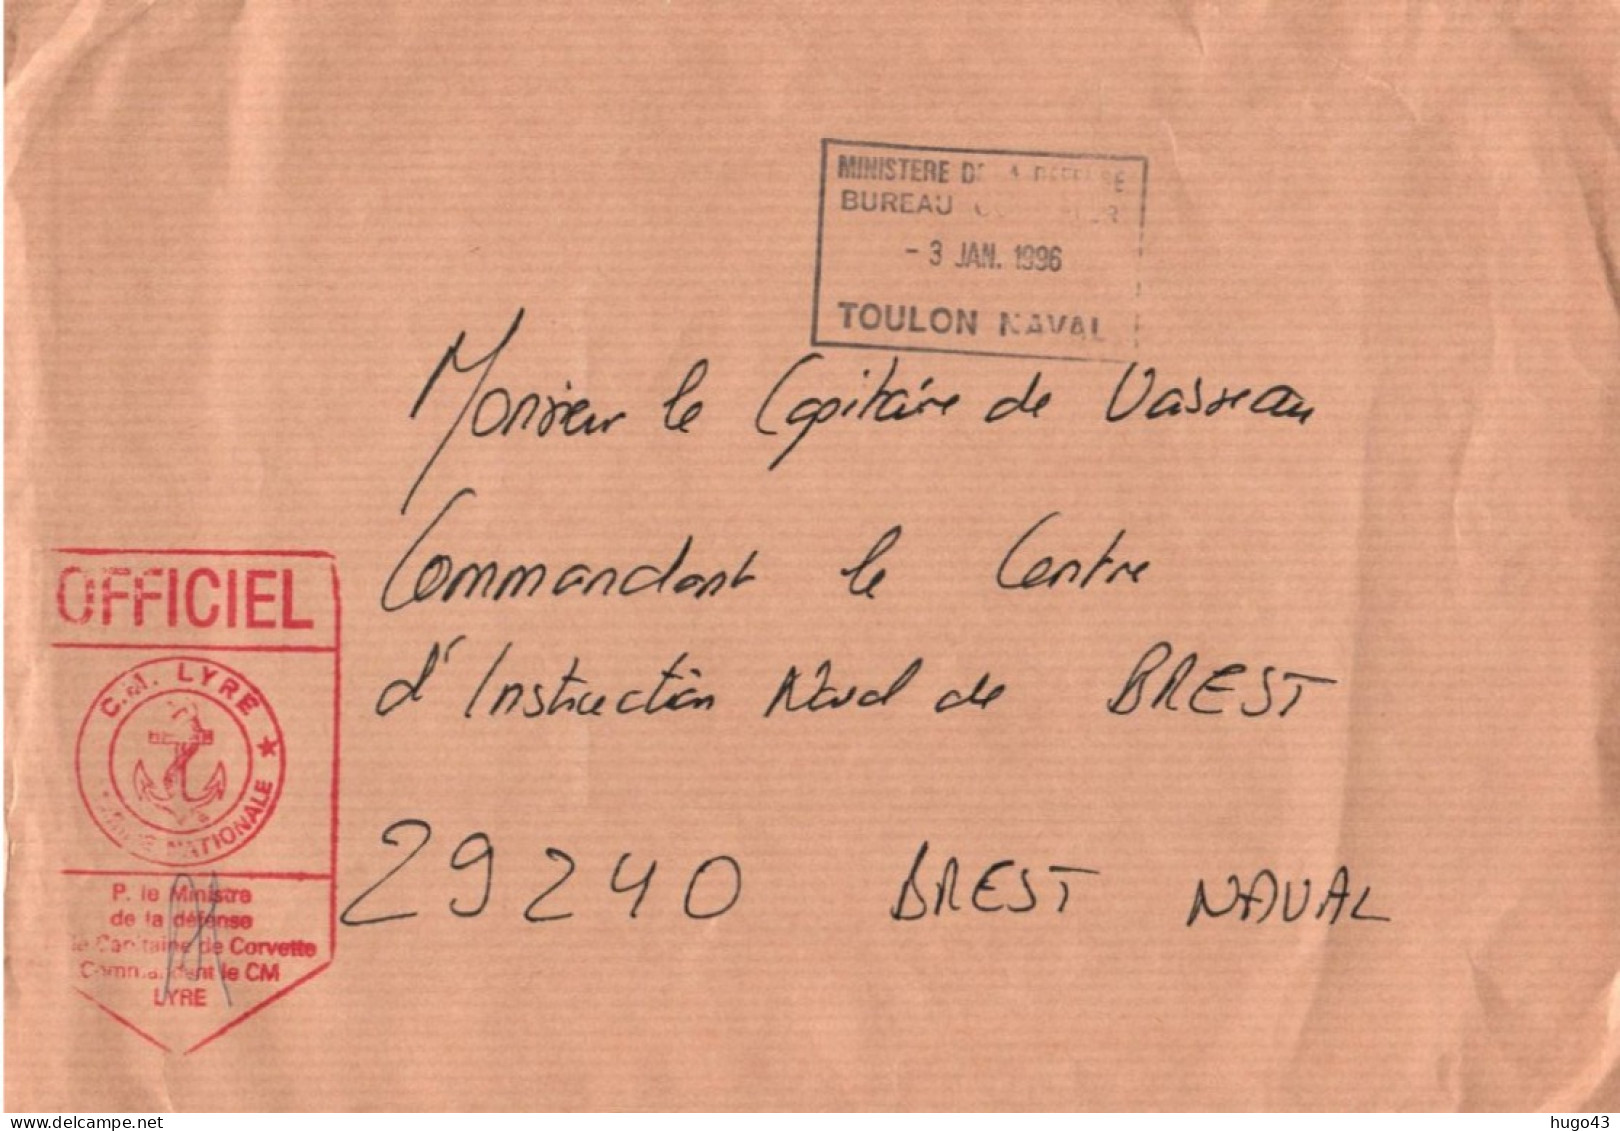 MINISTERE DE LA DEFENSE
BUREAU COURRIER
- 3 JAN. 1996
TOULON NAVAL
Monsieur le Capitaine de Vaisseau
Commandant le Centre
d'Instruction Naval de BREST
29240 BREST NAVAL
OFFICIEL
C.M. LYRE ★
MARINE NATIONALE
P. le Ministre
de la défense
le Capitaine de Corvette
Commandant le CM
LYRE
delcampe.net
hugo43